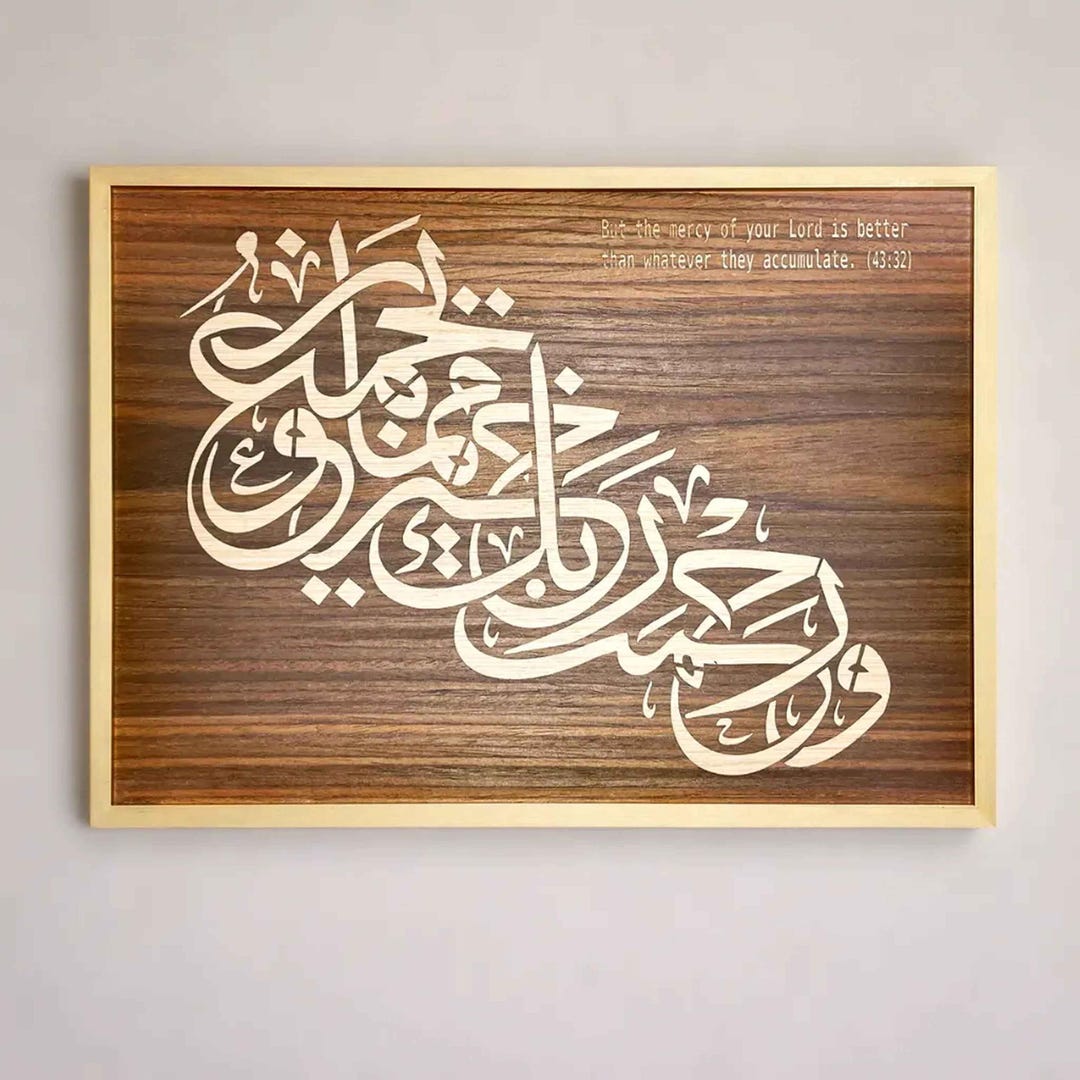 But the mercy of your Lord is better
than whatever they accumulate. (43:32)
ورحمت ربك خير مما يجمعون